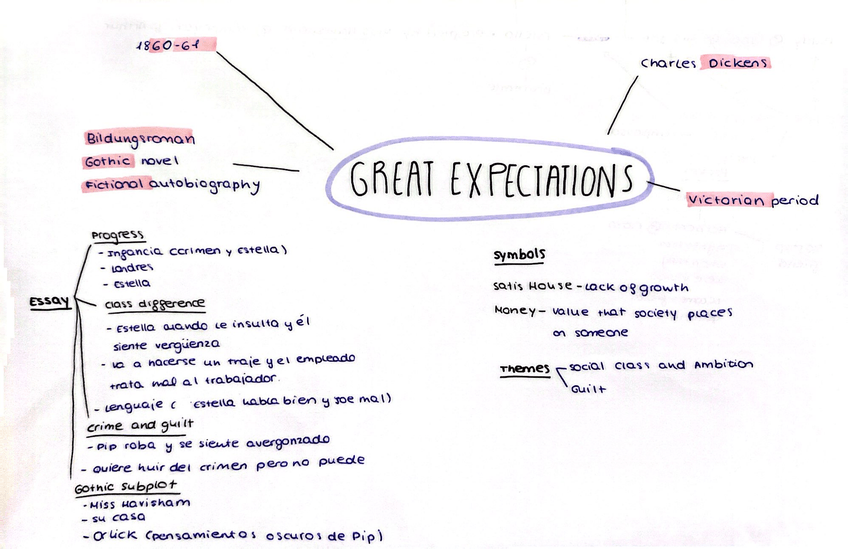 1860-61
Charles Dickens
Bildungsroman
Gothic novel
Fictional autobiography
GREAT EXPECTATIONS
Victorian period
Progress
- Infancia (crimen y Estella)
- Londres
- Estella
Essay
class difference
- Estella cuando le insulta y él
siente vergüenza
- va a hacerse un traje y el empleado
trata mal al trabajador.
- Lenguaje ( Estella habla bien y Joe mal)
crime and guilt
- Pip roba y se siente avergonzado
- Quiere huir del crimen pero no puede
Gothic subplot
- Miss Havisham
- su casa
- Orlick (pensamientos oscuros de Pip)
Symbols
Satis House - Lack of growth
Money - value that society places
on someone
Themes
social class and Ambition
Guilt